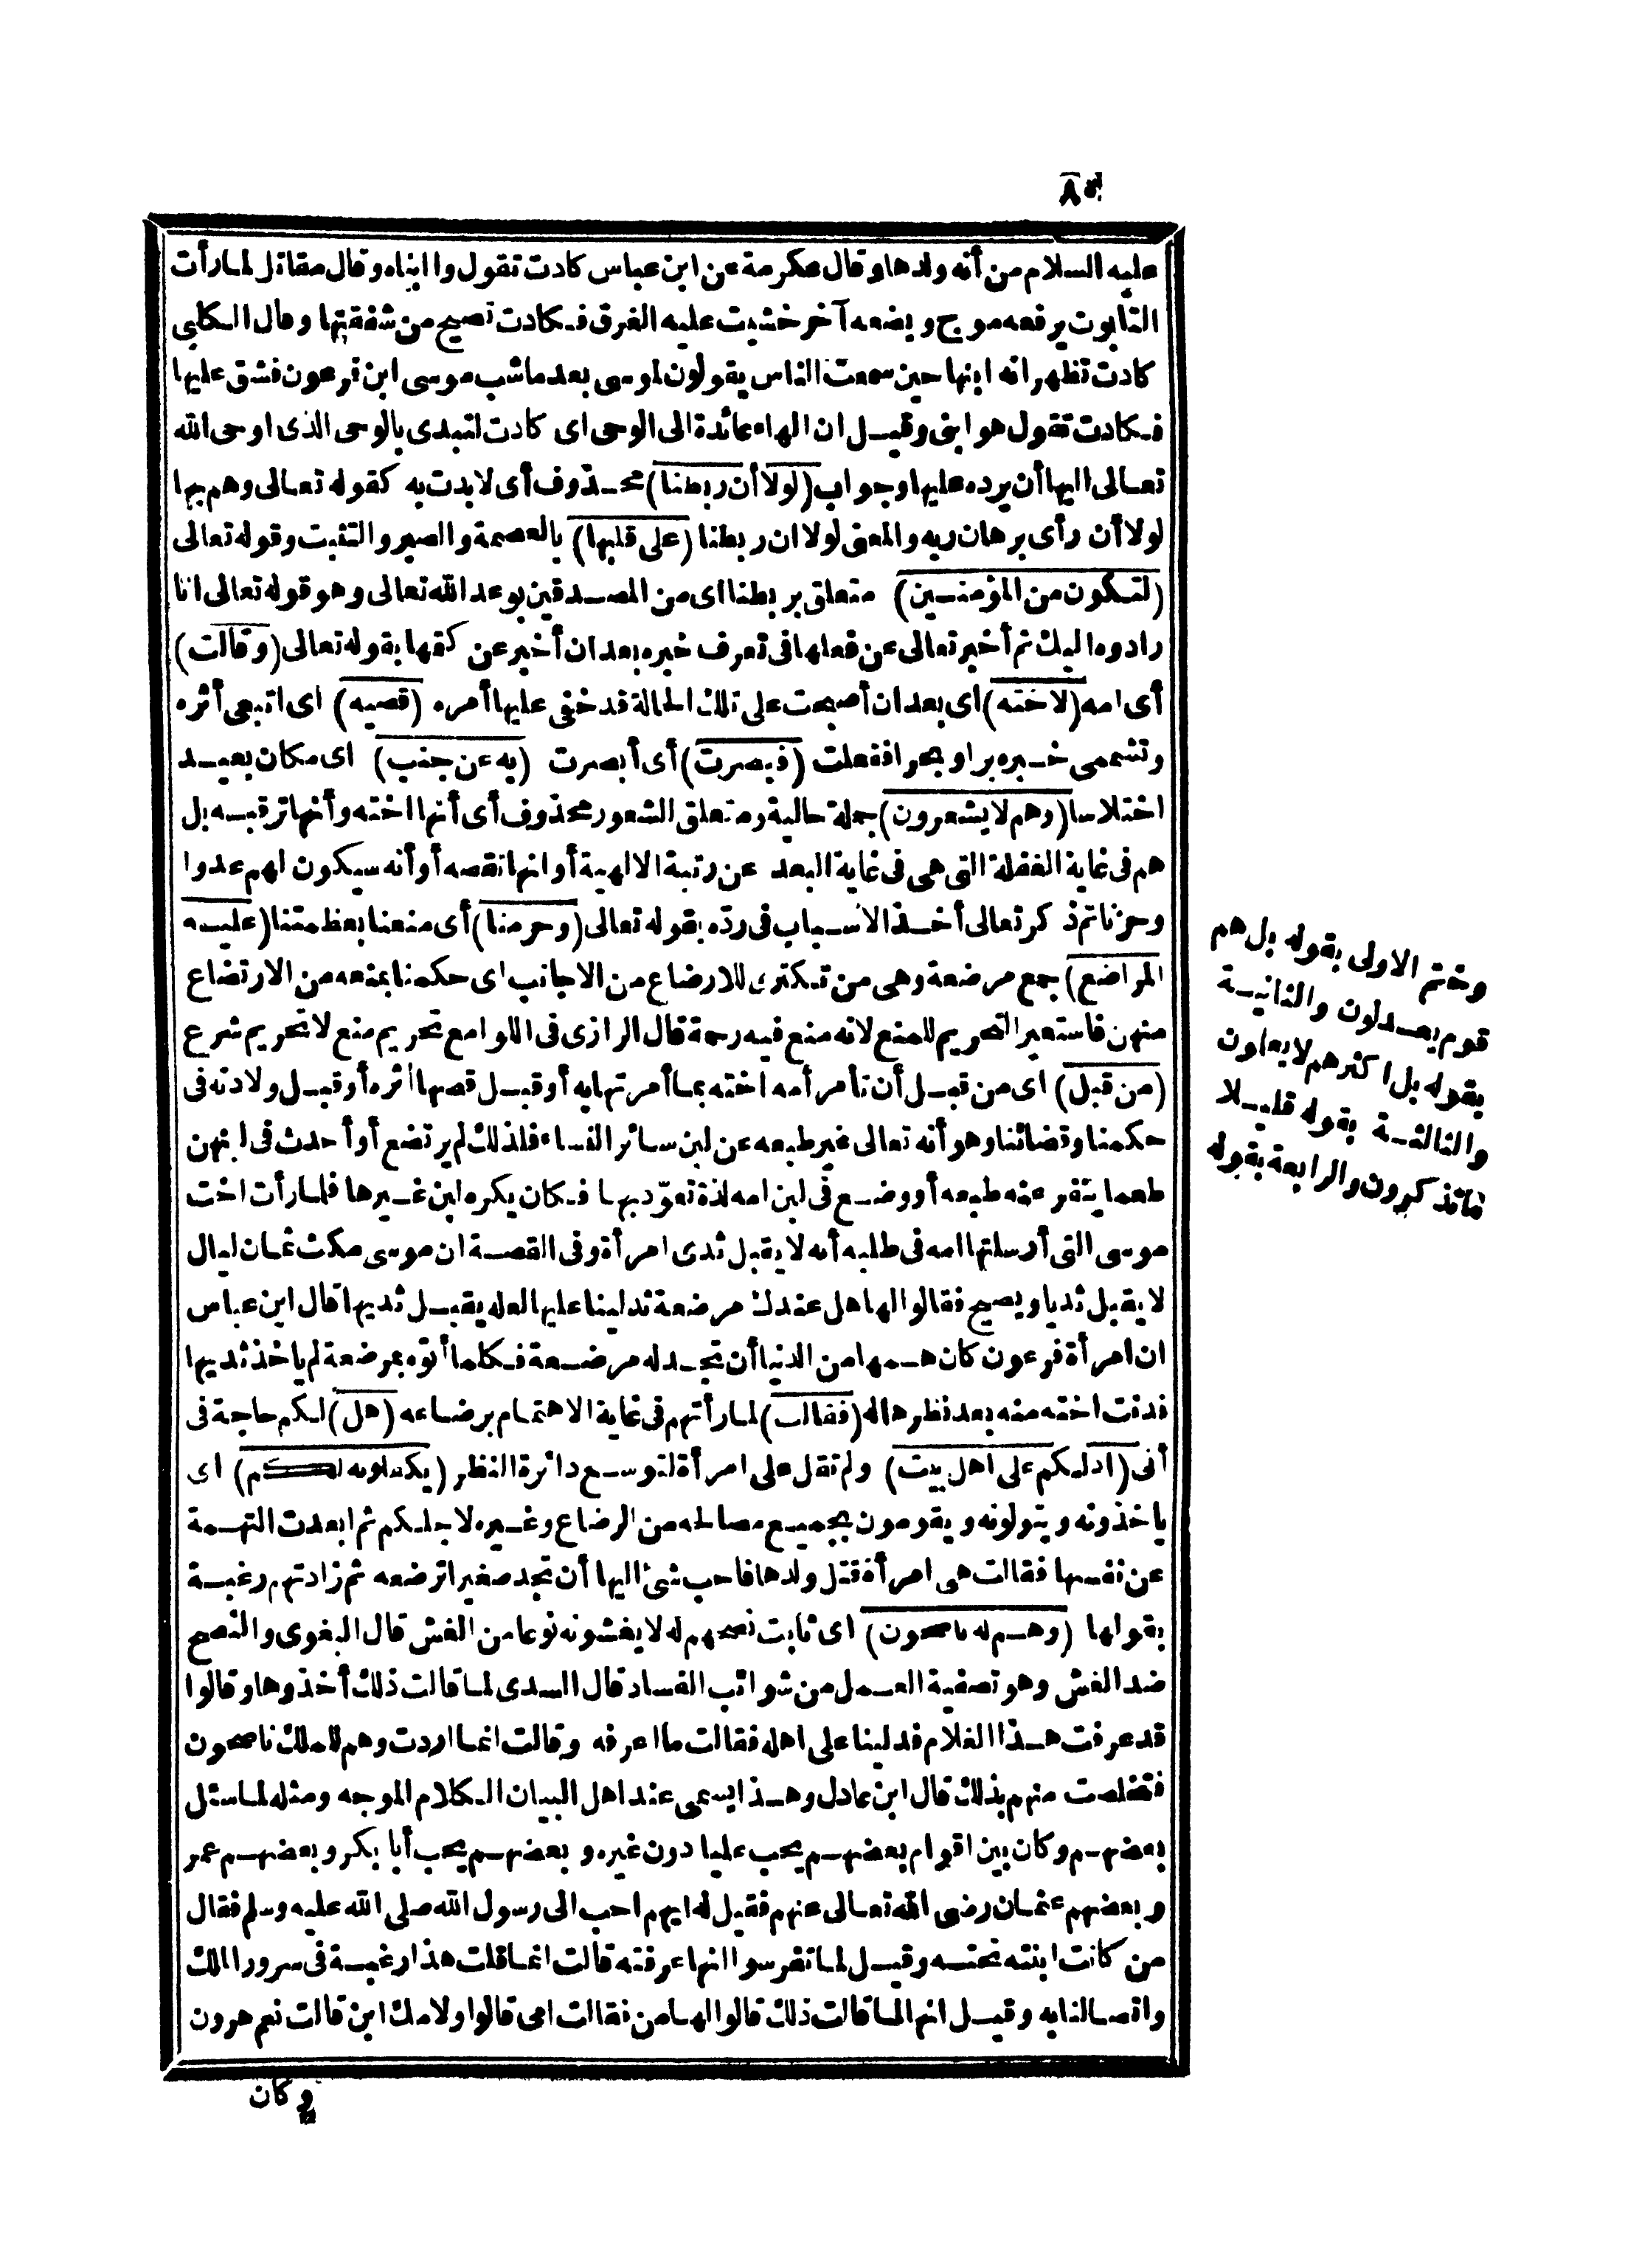 عليه السلام من أنه ولدها وقال عكرمة عن ابن عباس كادت تقول وا ابناه وقال مقاتل لما رأت
التابوت يرفعه موج ويضعه آخر خشيت عليه الغرق فكادت تصيح من شفقتها وقال الكلبي
كادت تظهر انه ابنها حين سمعت الناس يقولون لموسى بعد ما شب موسى ابن فرعون فشق عليها
فكادت تقول هو ابنى وقيل ان الهاء عائدة الى الوحى اى كادت لتبدى بالوحى الذى اوحى الله
تعالى اليها أن يرده عليها وجواب (لولا أن ربطنا) محذوف أى لابدت به كقوله تعالى وهم بها
لولا أن رأى برهان ربه والمعنى لولا ان ربطنا (على قلبها) بالعصمة والصبر والتثبت وقوله تعالى
(لتكون من المؤمنين) متعلق بربطنا اى من المصدقين بوعد الله تعالى وهو قوله تعالى انا
رادوه اليك ثم أخبر تعالى عن فعلها فى تعرف خبره بعد ان أخبر عن كتمها بقوله تعالى (وقالت)
أى امه (لاخته) أى بعد ان أصبحت على تلك الحالة قد خفى عليها أمره (قصيه) اى اتبعى أثره
وتشممى خبره برا وبحرا ففعلت (فبصرت) أى أبصرت (به عن جنب) اى مكان بعيد
اختلاسا (وهم لا يشعرون) جملة حالية ومتعلق الشعور محذوف أى أنها اخته وأنها ترقبه بل
هم فى غاية الغفلة التى هى فى غاية البعد عن رتبة الالهية أو انها تقصه أو أنه سيكون لهم عدوا
وحزنا ثم ذكر تعالى أخذ الاسباب فى ردّه بقوله تعالى (وحرمنا) أى منعنا بعظمتنا (عليه
المراضع) جمع مرضعة وهى من تكترى للارضاع من الاجانب اى حكمنا بمنعه من الارتضاع
منهن فاستعير التحريم للمنع لانه منع فيه رحمة قال الرازى فى اللوامع تحريم منع لا تحريم شرع
(من قبل) اى من قبل أن تأمر أمه اخته بما أمرتها به أو قبل قصها أثره أو قبل ولادته فى
حكمنا وقضائنا وهو أنه تعالى غير طبعه عن لبن سائر النساء فلذلك لم يرتضع أو أحدث فى لبنهن
طعما ينفر عنه طبعه أو وضع فى لبن امه لذة تعوّد بها فكان يكره لبن غيرها فلما رأت اخت
موسى التى أرسلتها امه فى طلبه أنه لا يقبل ثدى امرأة وفى القصة ان موسى مكث ثمان ليال
لا يقبل ثديا ويصيح فقالوا لها هل عندك مرضعة تدلينا عليها لعله يقبل ثديها قال ابن عباس
ان امرأة فرعون كان همها من الدنيا أن تجد له مرضعة فكلما أتوه بمرضعة لم يأخذ ثديها
فدنت اخته منه بعد نظرها له (فقالت) لما رأتهم فى غاية الاهتمام برضاعه (هل) لكم حاجة فى
أنى (ادلكم على اهل بيت) ولم تقل على امرأة لتوسع دائرة النظر (يكفلونه لكم) اى
ياخذونه ويتولونه ويقومون بجميع مصالحه من الرضاع وغيره لاجلكم ثم ابعدت التهمة
عن نفسها فقالت هى امرأة قتل ولدها فاحب شئ اليها أن تجد صغيرا ترضعه ثم زادتهم رغبة
بقولها (وهم له ناصحون) اى ثابت نصحهم له لا يغشونه نوعا من الغش قال البغوى والنصح
ضد الغش وهو تصفية العمل من شوائب الفساد قال السدى لما قالت ذلك أخذوها وقالوا
قد عرفت هذا الغلام فدلينا على اهله فقالت ما اعرفه وقالت انما اردت وهم للملك ناصحون
فتخلصت منهم بذلك قال ابن عادل وهذا يسمى عند اهل البيان الكلام الموجه ومثله لما سئل
بعضهم وكان بين اقوام بعضهم يحب عليا دون غيره وبعضهم يحب أبا بكر وبعضهم عمر
وبعضهم عثمان رضى الله تعالى عنهم فقيل له ايهم احب الى رسول الله صلى الله عليه وسلم فقال
من كانت ابنته تحته وقيل لما تفرسوا انها عرفته قالت انما قلت هذا رغبة فى سرور الملك
واتصالنا به وقيل انها لما قالت ذلك قالوا لها من فقالت امى قالوا ولامك ابن قالت نعم هرون
وكان
وختم الاولى بقوله بل هم
قوم يعدلون والثانية
بقوله بل اكثرهم لا يعلمون
والثالثة بقوله قليلا
ما تذكرون والرابعة بقوله